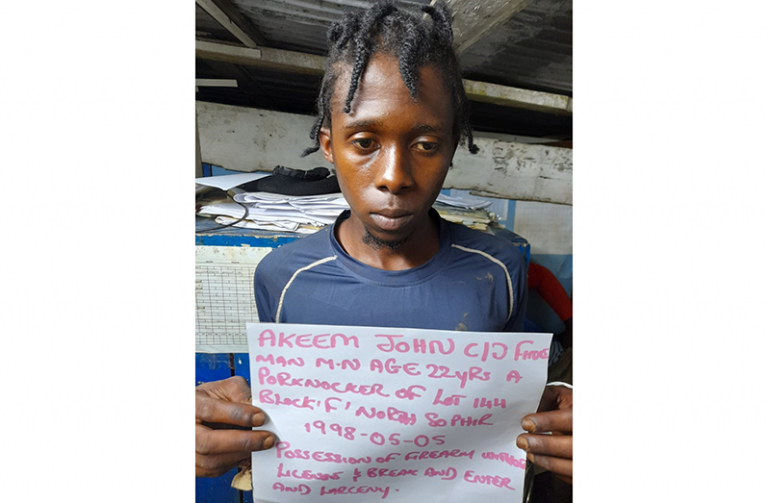 AKEEM JOHN C/D FINE
MAN M.N AGE 22yRS A
PORKNOCKER OF LOT 144
BLOCK 'F' NORTH SOPHIR
1998-05-05
POSSESSION OF FIREARM WITHOUT
LICENSE & BREAK AND ENTER
AND LARCENY.